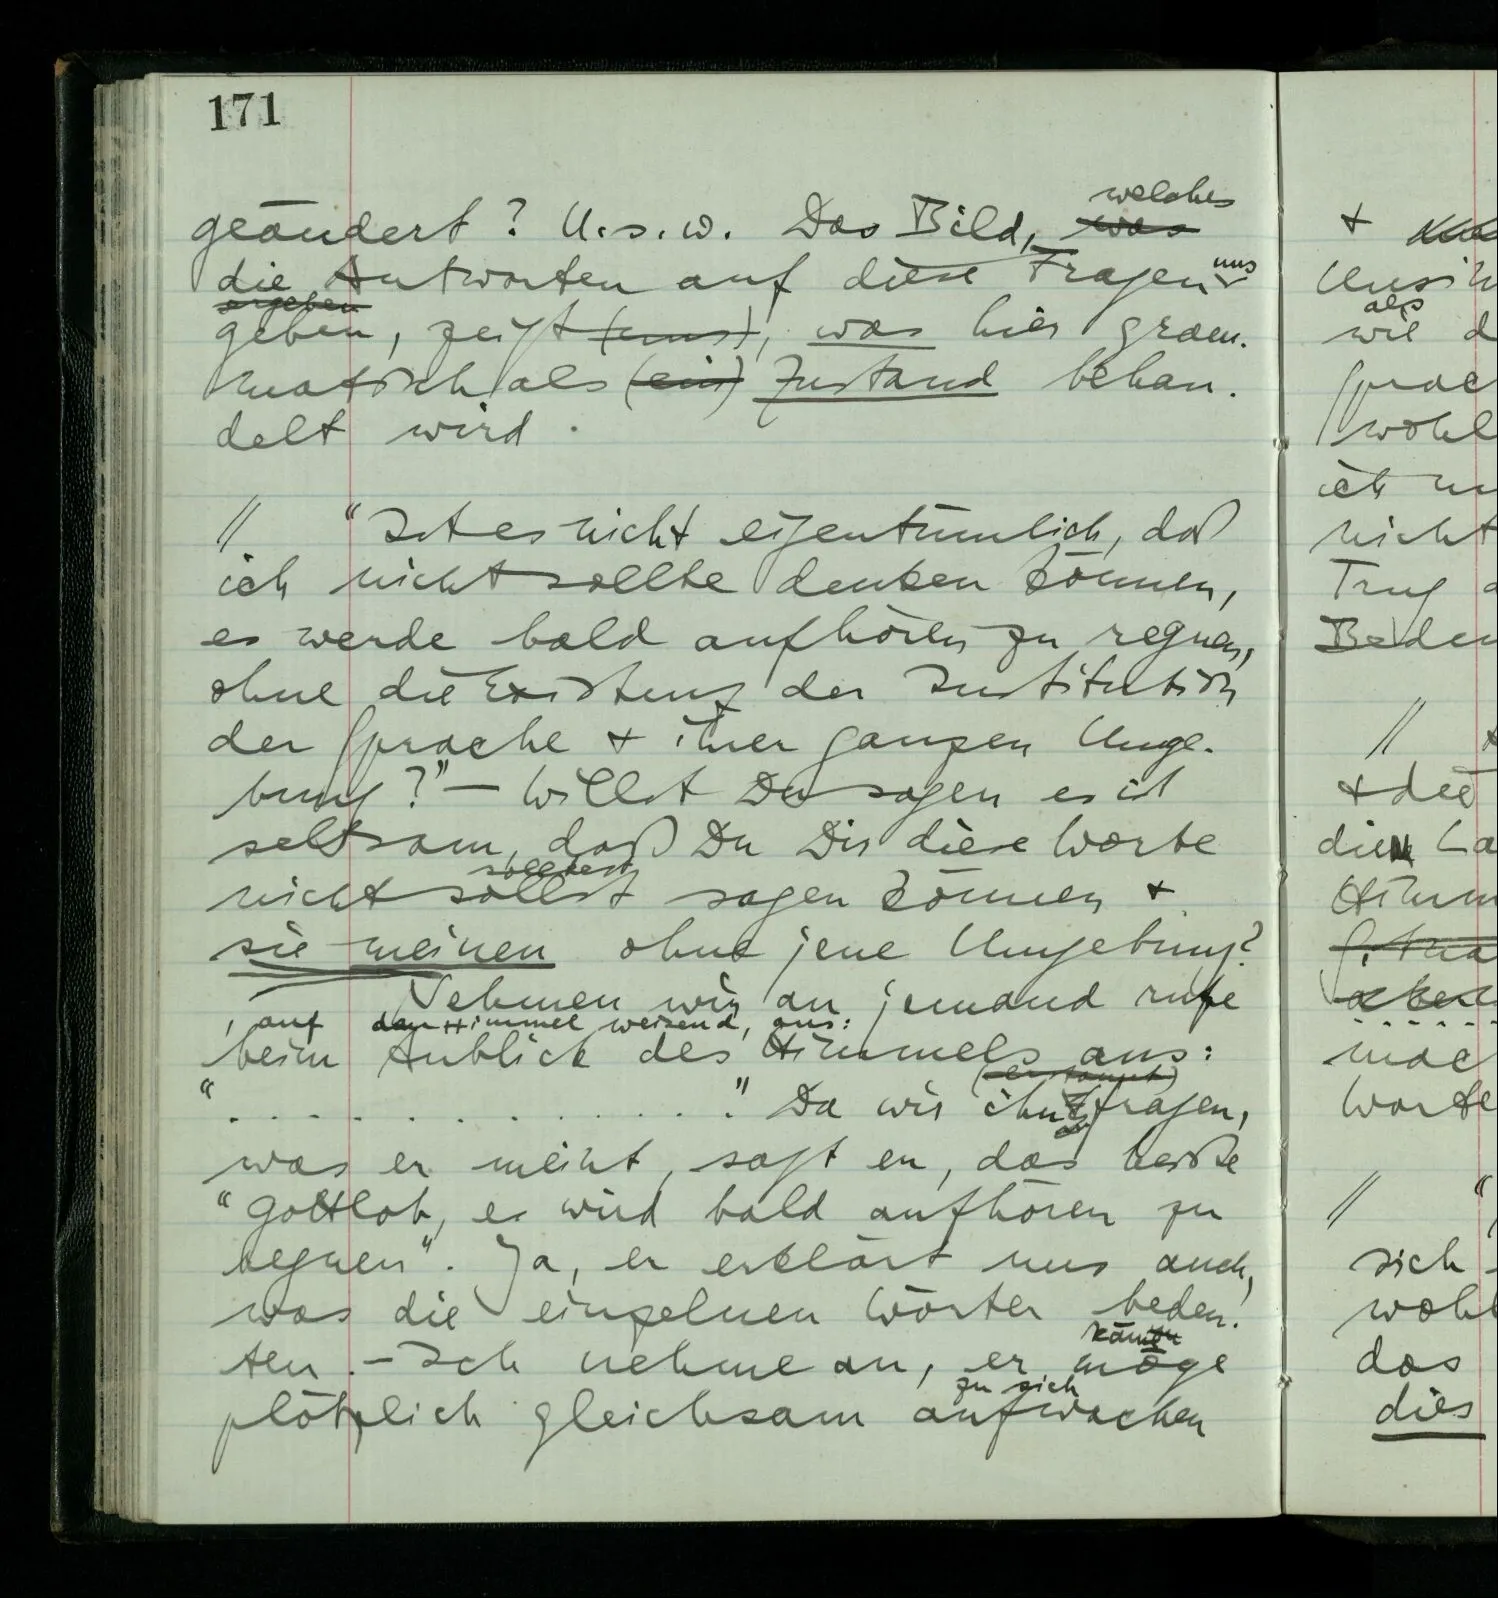 171
welches
geändert? U.s.w. Das Bild, was
die Antworten auf diese Fragen uns
ergeben
geben, zeigt (uns), was hier gram-
matisch als (ein) Zustand behan-
delt wird.
// "Ist es nicht eigentümlich, daß
ich nicht sollte denken können,
es werde bald aufhören zu regnen,
ohne die Existenz der Institution
der Sprache + ihrer ganzen Umge-
bung?" – Willst Du sagen es ist
seltsam, daß Du Dir diese Worte
solltest
nicht sollst sagen können +
sie meinen ohne jene Umgebung?
Nehmen wir an jemand rufe
, auf den Himmel weisend, aus:
beim Anblick des Himmels aus:
" . . . . . . . . . . . . ." Da wir ihn fragen,
was er meint, sagt er, das heiße
"Gottlob, es wird bald aufhören zu
regnen". Ja, er erklärt uns auch,
was die einzelnen Wörter bedeu-
ten. – Ich nehme an, er möge
zu sich
plötzlich gleichsam aufwachen
+
als
wie d
wohl
ich
nicht
Trug
//
+ die
mac
Worte
// "
sich
wohl
das
dies